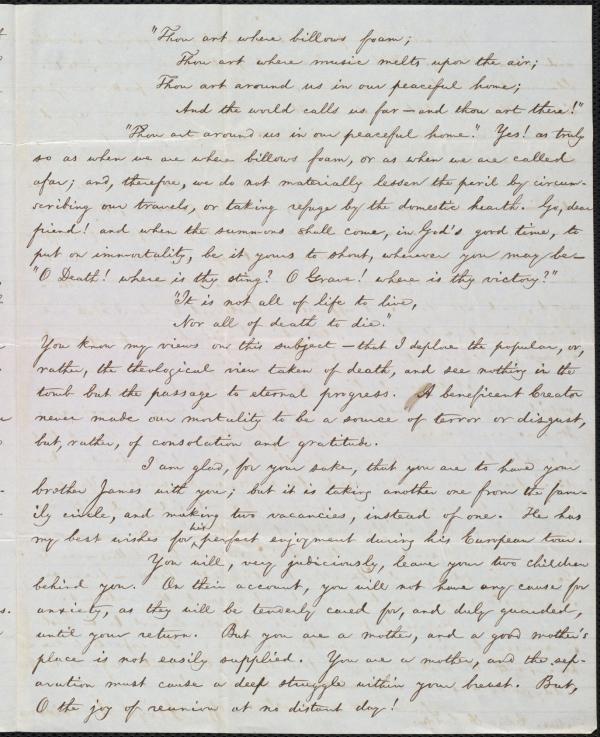 "Thou art where billows foam;
Thou art where music melts upon the air;
Thou art around us in our peaceful home;
And the world calls us far—and thou art there!"
"Thou art around us in our peaceful home." Yes! as truly
so as when we are where billows foam, or as when we are called
afar; and, therefore, we do not materially lessen the peril by circum-
scribing our travels, or taking refuge by the domestic hearth. Go, dear
friend! and when the summons shall come, in God's good time, to
put on immortality, be it yours to shout, wherever you may be—
"O Death! where is thy sting? O Grave! where is thy victory?"
"It is not all of life to live,
Nor all of death to die."
You know my views on this subject—that I deplore the popular, or,
rather, the theological view taken of death, and see nothing in the
tomb but the passage to eternal progress. A beneficent Creator
never made our mortality to be a source of terror or disgust,
but, rather, of consolation and gratitude.
I am glad, for your sake, that you are to have your
brother James with you; but it is taking another one from the fam-
ily circle, and making two vacancies, instead of one. He has
my best wishes for his perfect enjoyment during his European tour.
You will, very judiciously, leave your two children
behind you. On their account, you will not have any cause for
anxiety, as they will be tenderly cared for, and duly guarded,
until your return. But you are a mother, and a good mother's
place is not easily supplied. You are a mother, and the sep-
aration must cause a deep struggle within your breast. But,
O the joy of reunion at no distant day!